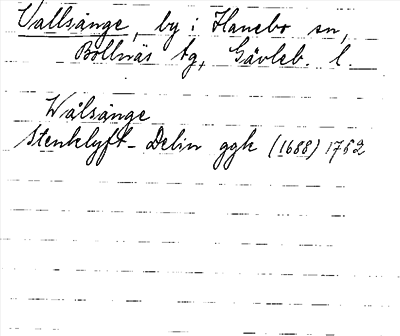 Vallsänge, by i Hanebo sn,
Bollnäs tg, Gävleb. l.
Wålsänge
Stenklyft - Delin ggk (1688) 1752